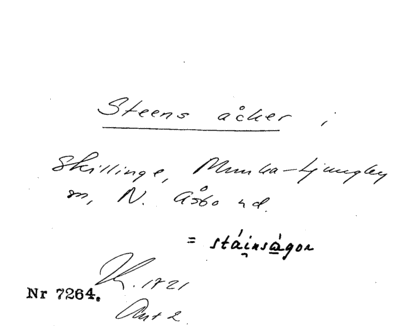 Steens åcker i
Skillinge, Munka-Ljungby
sn, N. Åsbo hd.
= stáinságor
K. 1821
Nr 7264.
Akt 2